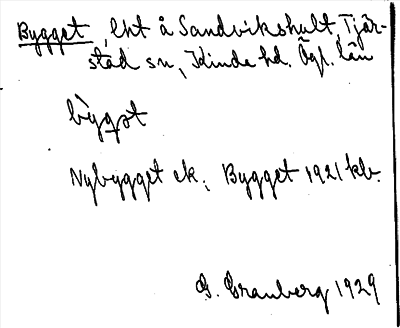 Bygget, lht å Sandvikshult, Tjär-
stad sn, Kinda hd. Ögl. län
bỳgget
Nybygget ek; Bygget 1921 kb.
G. Granberg 1929